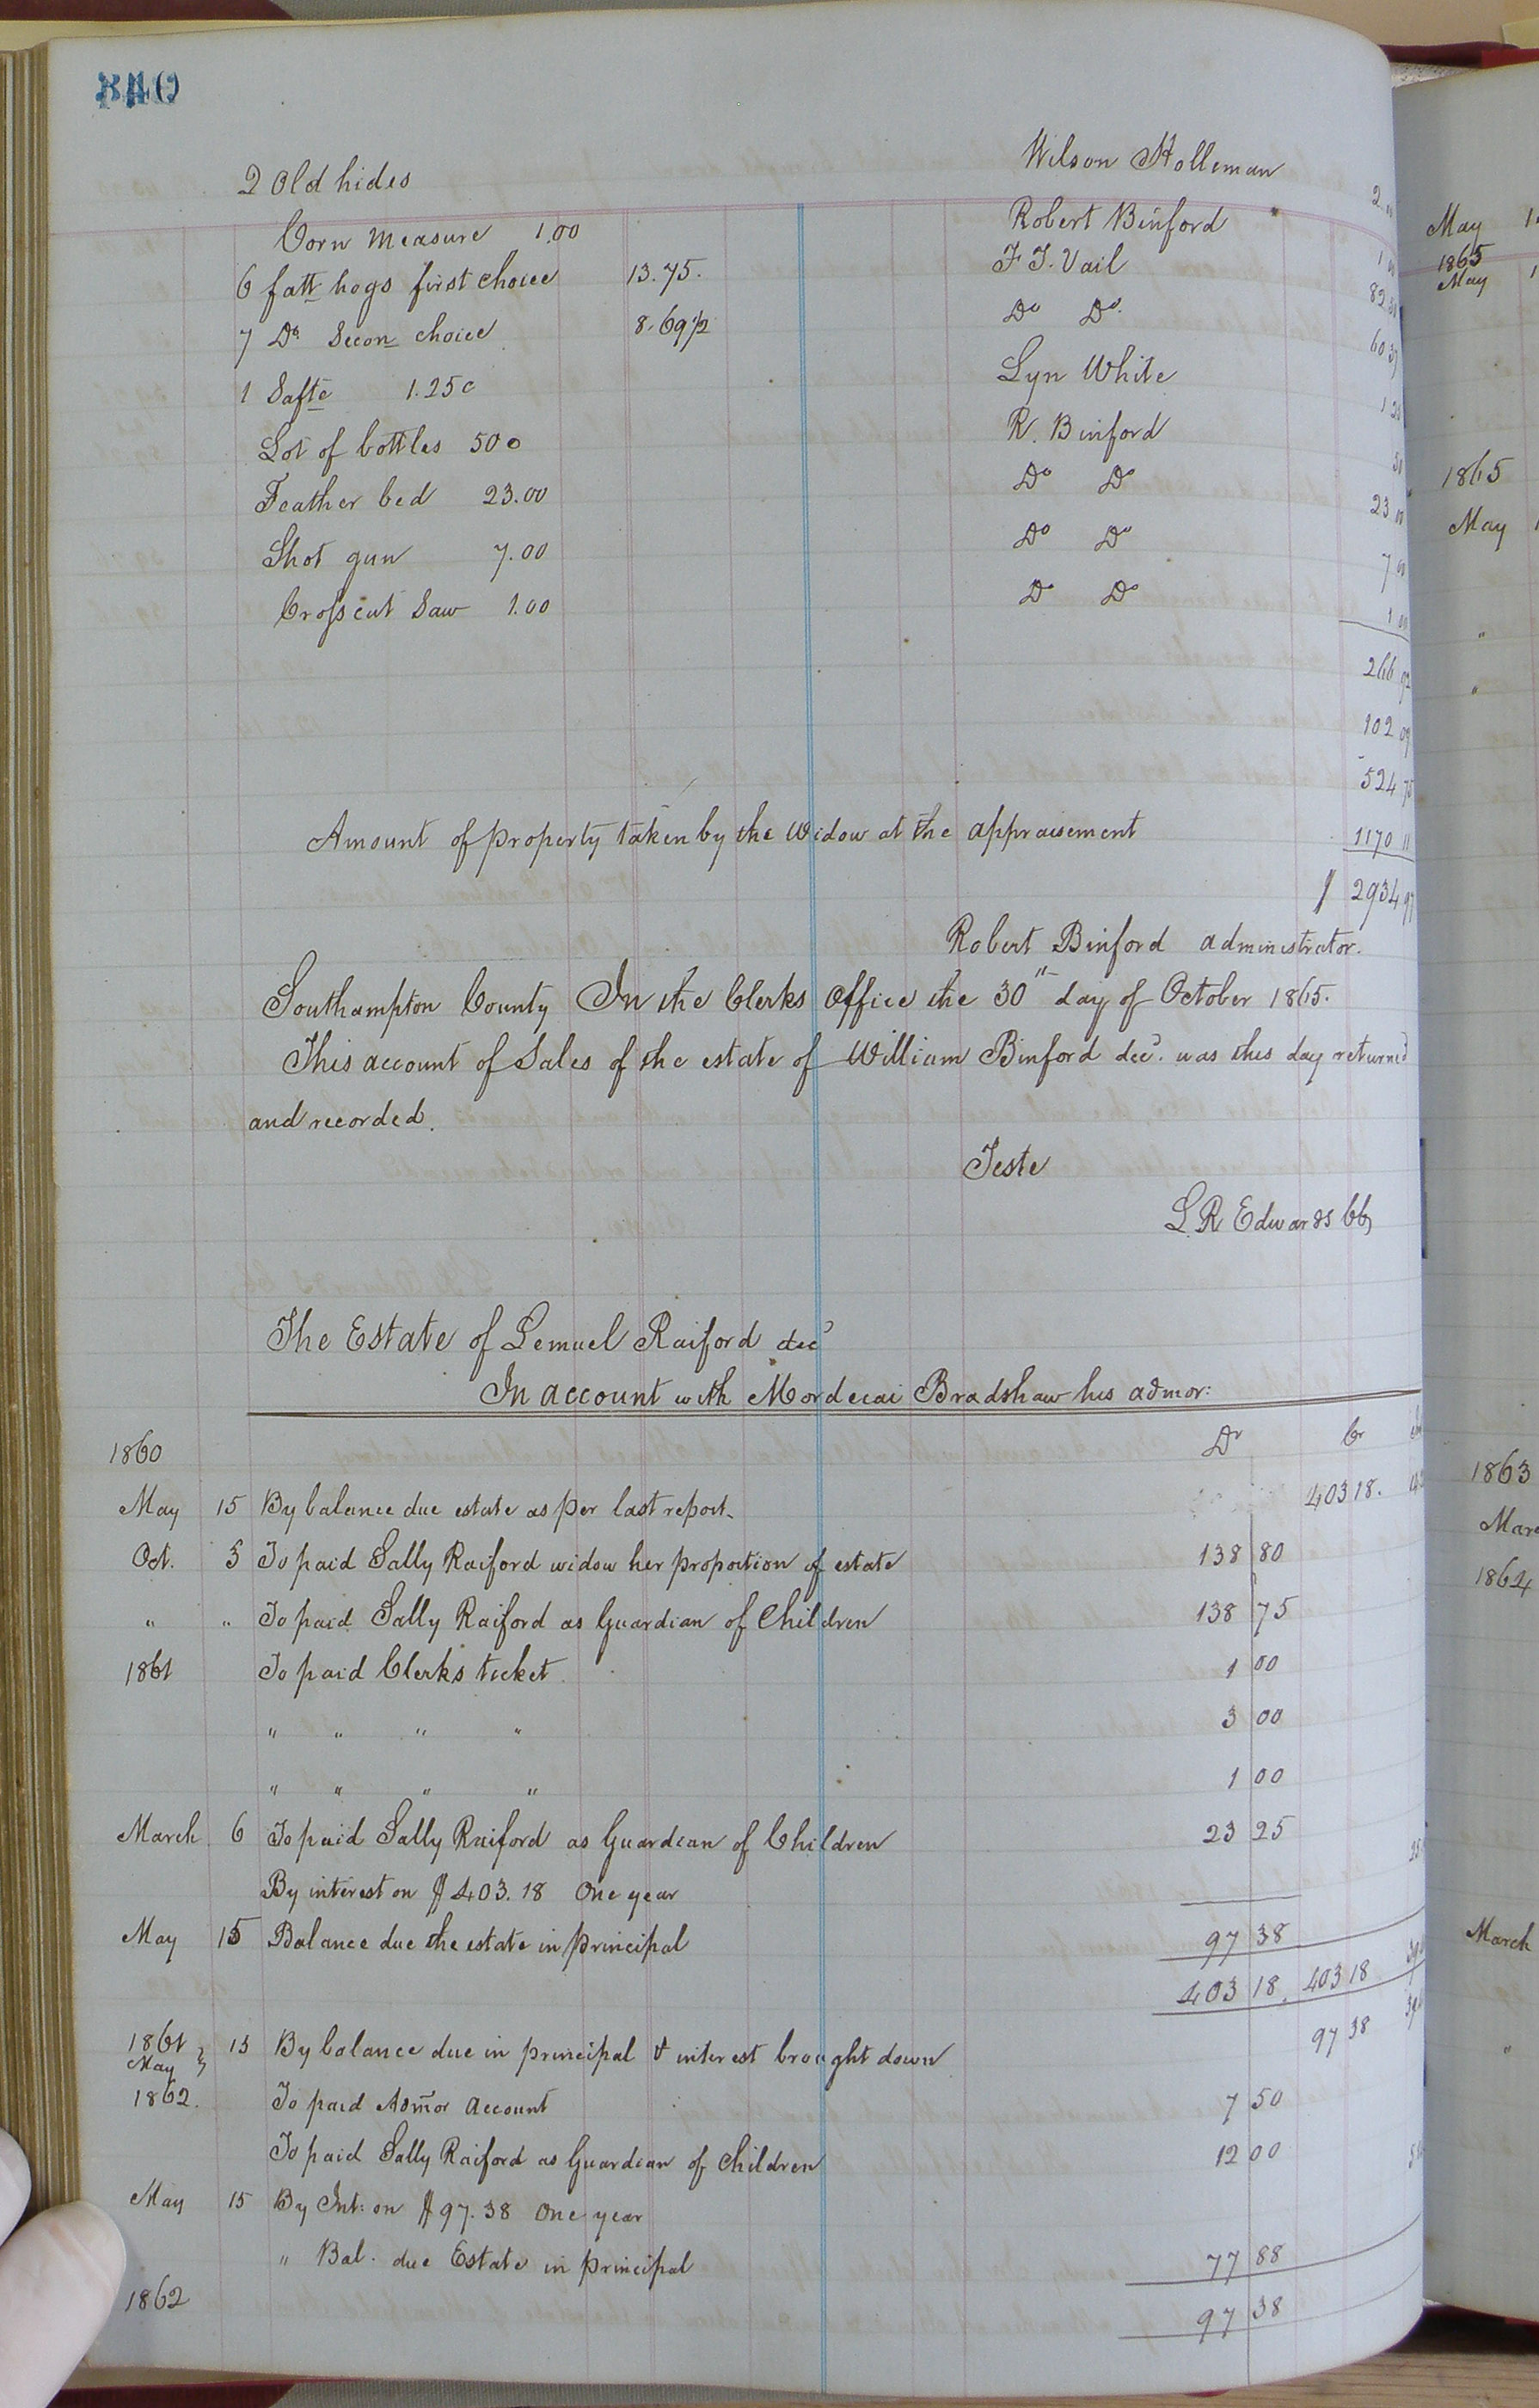 340
2 Old hides Wilson Holleman 2.00
Corn Measure 1.00 Robert Binford 1 00
6 fatt hogs first choice 13.75. F J. Vail 82.50
7 Do Secon choice 8.69 1/2 Do Do.
1 Safte 1.25c Lyn White 1.25
Lot of bottles 50c R. Binford 50
Feather bed 23.00 Do Do 23 00
Shot gun 7.00 Do Do 7 00
Crosscut Saw 1.00 Do Do 1 00
266 92
102 09
524 75
Amount of property taken by the Widow at the appraisement 1170 11
$ 2934 97
Robert Binford administrator.
Southampton County In the Clerks Office the 30th day of October 1865.
This account of Sales of the estate of William Binford decd. was this day returned
and recorded.
Teste
L R Edwards CC
The Estate of Lemuel Raiford decd
In account with Mordecai Bradshaw his admor:
1860 Dr Cr
May 15 By balance due estate as per last report. 403 18.
Oct. 5 To paid Sally Raiford widow her proportion of estate 138 80
" " To paid Sally Raiford as Guardian of Children 138 75
1861 To paid Clerks ticket 1 00
" " " " 3 00
" " " " 1 00
March 6 To paid Sally Raiford as Guardian of Children 23 25
By interest on $403.18 One year
May 15 Balance due the estate in principal 97 38
403 18. 403 18
1861 May 15 By balance due in principal & interest brought down 97 38
1862. To paid Admor account 7 50
To paid Sally Raiford as Guardian of Children 12 00
May 15 By Int: on $97.38 One year
" Bal. due Estate in principal 77 88
1862 97 38
May
1865
May
1865
May
"
"
1863
1864
March
"